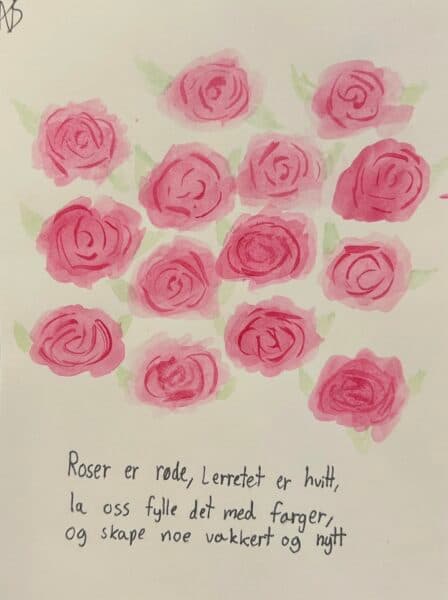 AB
Roser er røde, Lerretet er hvitt,
la oss fylle det med farger,
og skape noe vakkert og nytt